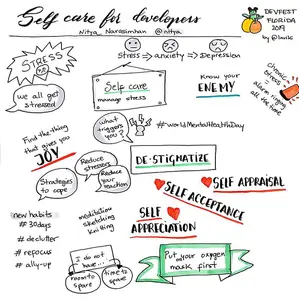 Self care for developers
Nitya Narasimhan @nitya
DEVFEST
FLORIDA
2019
STRESS
we all get
stressed
Stress → anxiety → Depression
Self care
manage stress
Know your
ENEMY
chronic
stress =
alarm ringing
all the time
Find the thing
that gives you
JOY
what
triggers
you?
#worldMentalHealthDay
Reduce
stressors
Strategies
to cope
Reduce
your
reaction
DE-STIGMATIZE
SELF APPRAISAL
SELF ACCEPTANCE
SELF
APPRECIATION
new habits
#30days
# declutter
# refocus
# ally-up
meditation
sketching
knitting
I do not
have...
room to
spare
time to
spare
Put your oxygen
mask first